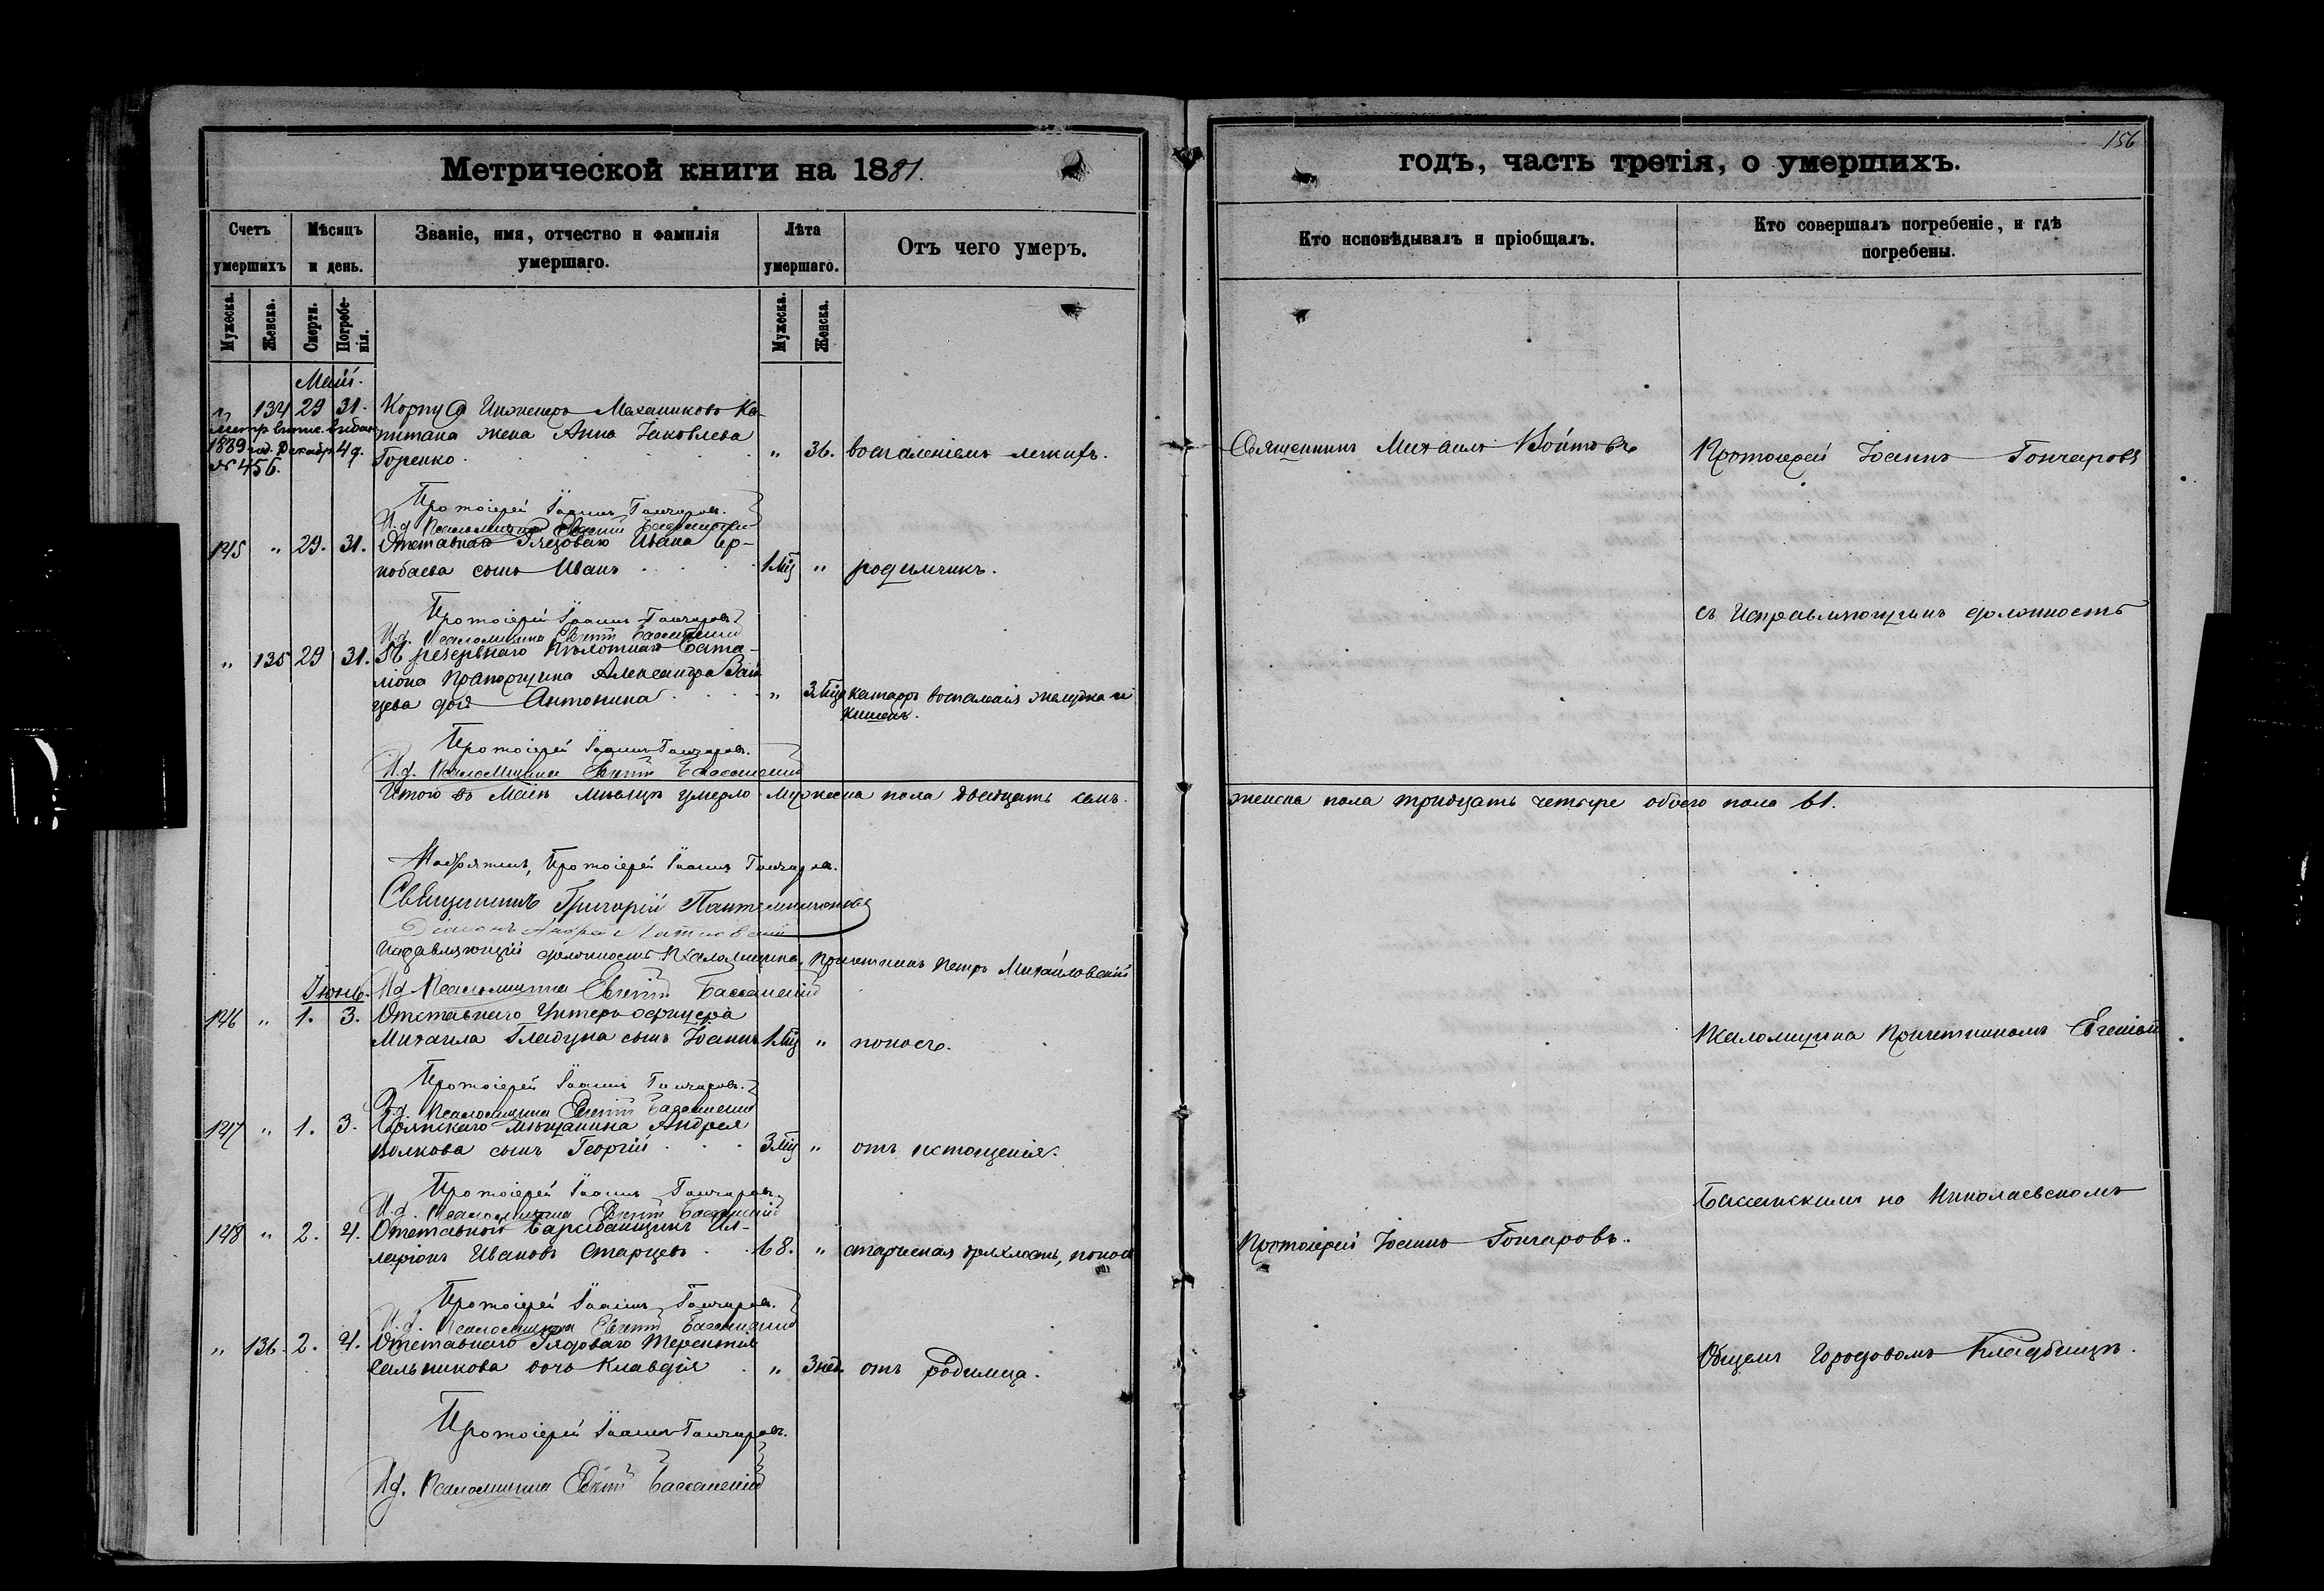 156
Метрической книги на 1881.
годъ, часть третія, о умершихъ.
Счетъ умершихъ
Мѣсяцъ и день.
Званіе, имя, отчество и фамилія умершаго.
Лѣта умершаго.
Отъ чего умеръ.
Кто исповѣдывалъ и пріобщалъ.
Кто совершалъ погребеніе, и гдѣ погребены.
Мужеска.
Женска.
Смерти.
Погребенія.
Мужеска.
Женска.
Май.
" 134 29 31. Корпуса Инженеръ Механиковъ Ка-
питана жена Анна Іаковлева
Горенко " 36. воспаленіемъ легкихъ.
1889 год. Декабр. 4 д.
№ 456.
Священникъ Михаилъ Войтовъ
Протоіерей Іоаннъ Гончаровъ
Протоіерей Іоаннъ Гончаровъ.
И.д. Псаломщика Евгеній Бассанскій
145 " 29. 31. Отставнаго Рядоваго Ивана
сынъ Иванъ 1 мц " родимчикъ.
Протоіерей Іоаннъ Гончаровъ
И.д. Псаломщика Евгеній Бассанскій
съ Исправляющимъ должность
" 135 29 31. резервнаго пѣхотнаго Бата-
ліона Прапорщика Александра Зай
цева дочь Антонина " 3 мца катарръ воспаленія желудка и
кишекъ.
Протоіерей Іоаннъ Гончаровъ.
И.д. Псаломщика Евгеній Бассанскій
Итого въ Маѣ мѣсяцѣ умерло мужеска пола двадцать семь.
женска пола тридцать четыре обоего пола 61.
Протоіерей Іоаннъ Гончаровъ.
Священникъ Григорій
Діаконъ Андрей
Исправляющій должность Псаломщика, Причетникъ Петръ Михайловскій
И.д. Псаломщика Евгеній Бассанскій
Іюнь.
146 " 1. 3. Отставнаго Унтеръ-офицера
Михаила Гладуна сынъ Іоаннъ 1 мц " поносъ.
Псаломщика Причетникомъ Евгеніемъ
Протоіерей Іоаннъ Гончаровъ.
И.д. Псаломщика Евгеній Бассанскій
147 " 1. 3. мѣщанина Андрея
Волкова сынъ Георгій 3 мц " отъ истощенія.
Протоіерей Іоаннъ Гончаровъ.
И.д. Псаломщика Евгеній Бассанскій
Бассанскимъ на Николаевскомъ
148 " 2. 4. Отставной Барабанщикъ Ил-
ларіонъ Ивановъ Старцевъ 68. " старческая дряхлость, поносъ
Протоіерей Іоаннъ Гончаровъ.
Протоіерей Іоаннъ Гончаровъ.
И.д. Псаломщика Евгеній Бассанскій
" 136. 2. 4. Отставнаго Рядоваго Терентія
Сальникова дочь Клавдія " 3 нед. отъ родимца.
Общемъ Городовомъ Кладбищѣ.
Протоіерей Іоаннъ Гончаровъ.
И.д. Псаломщика Евгеній Бассанскій